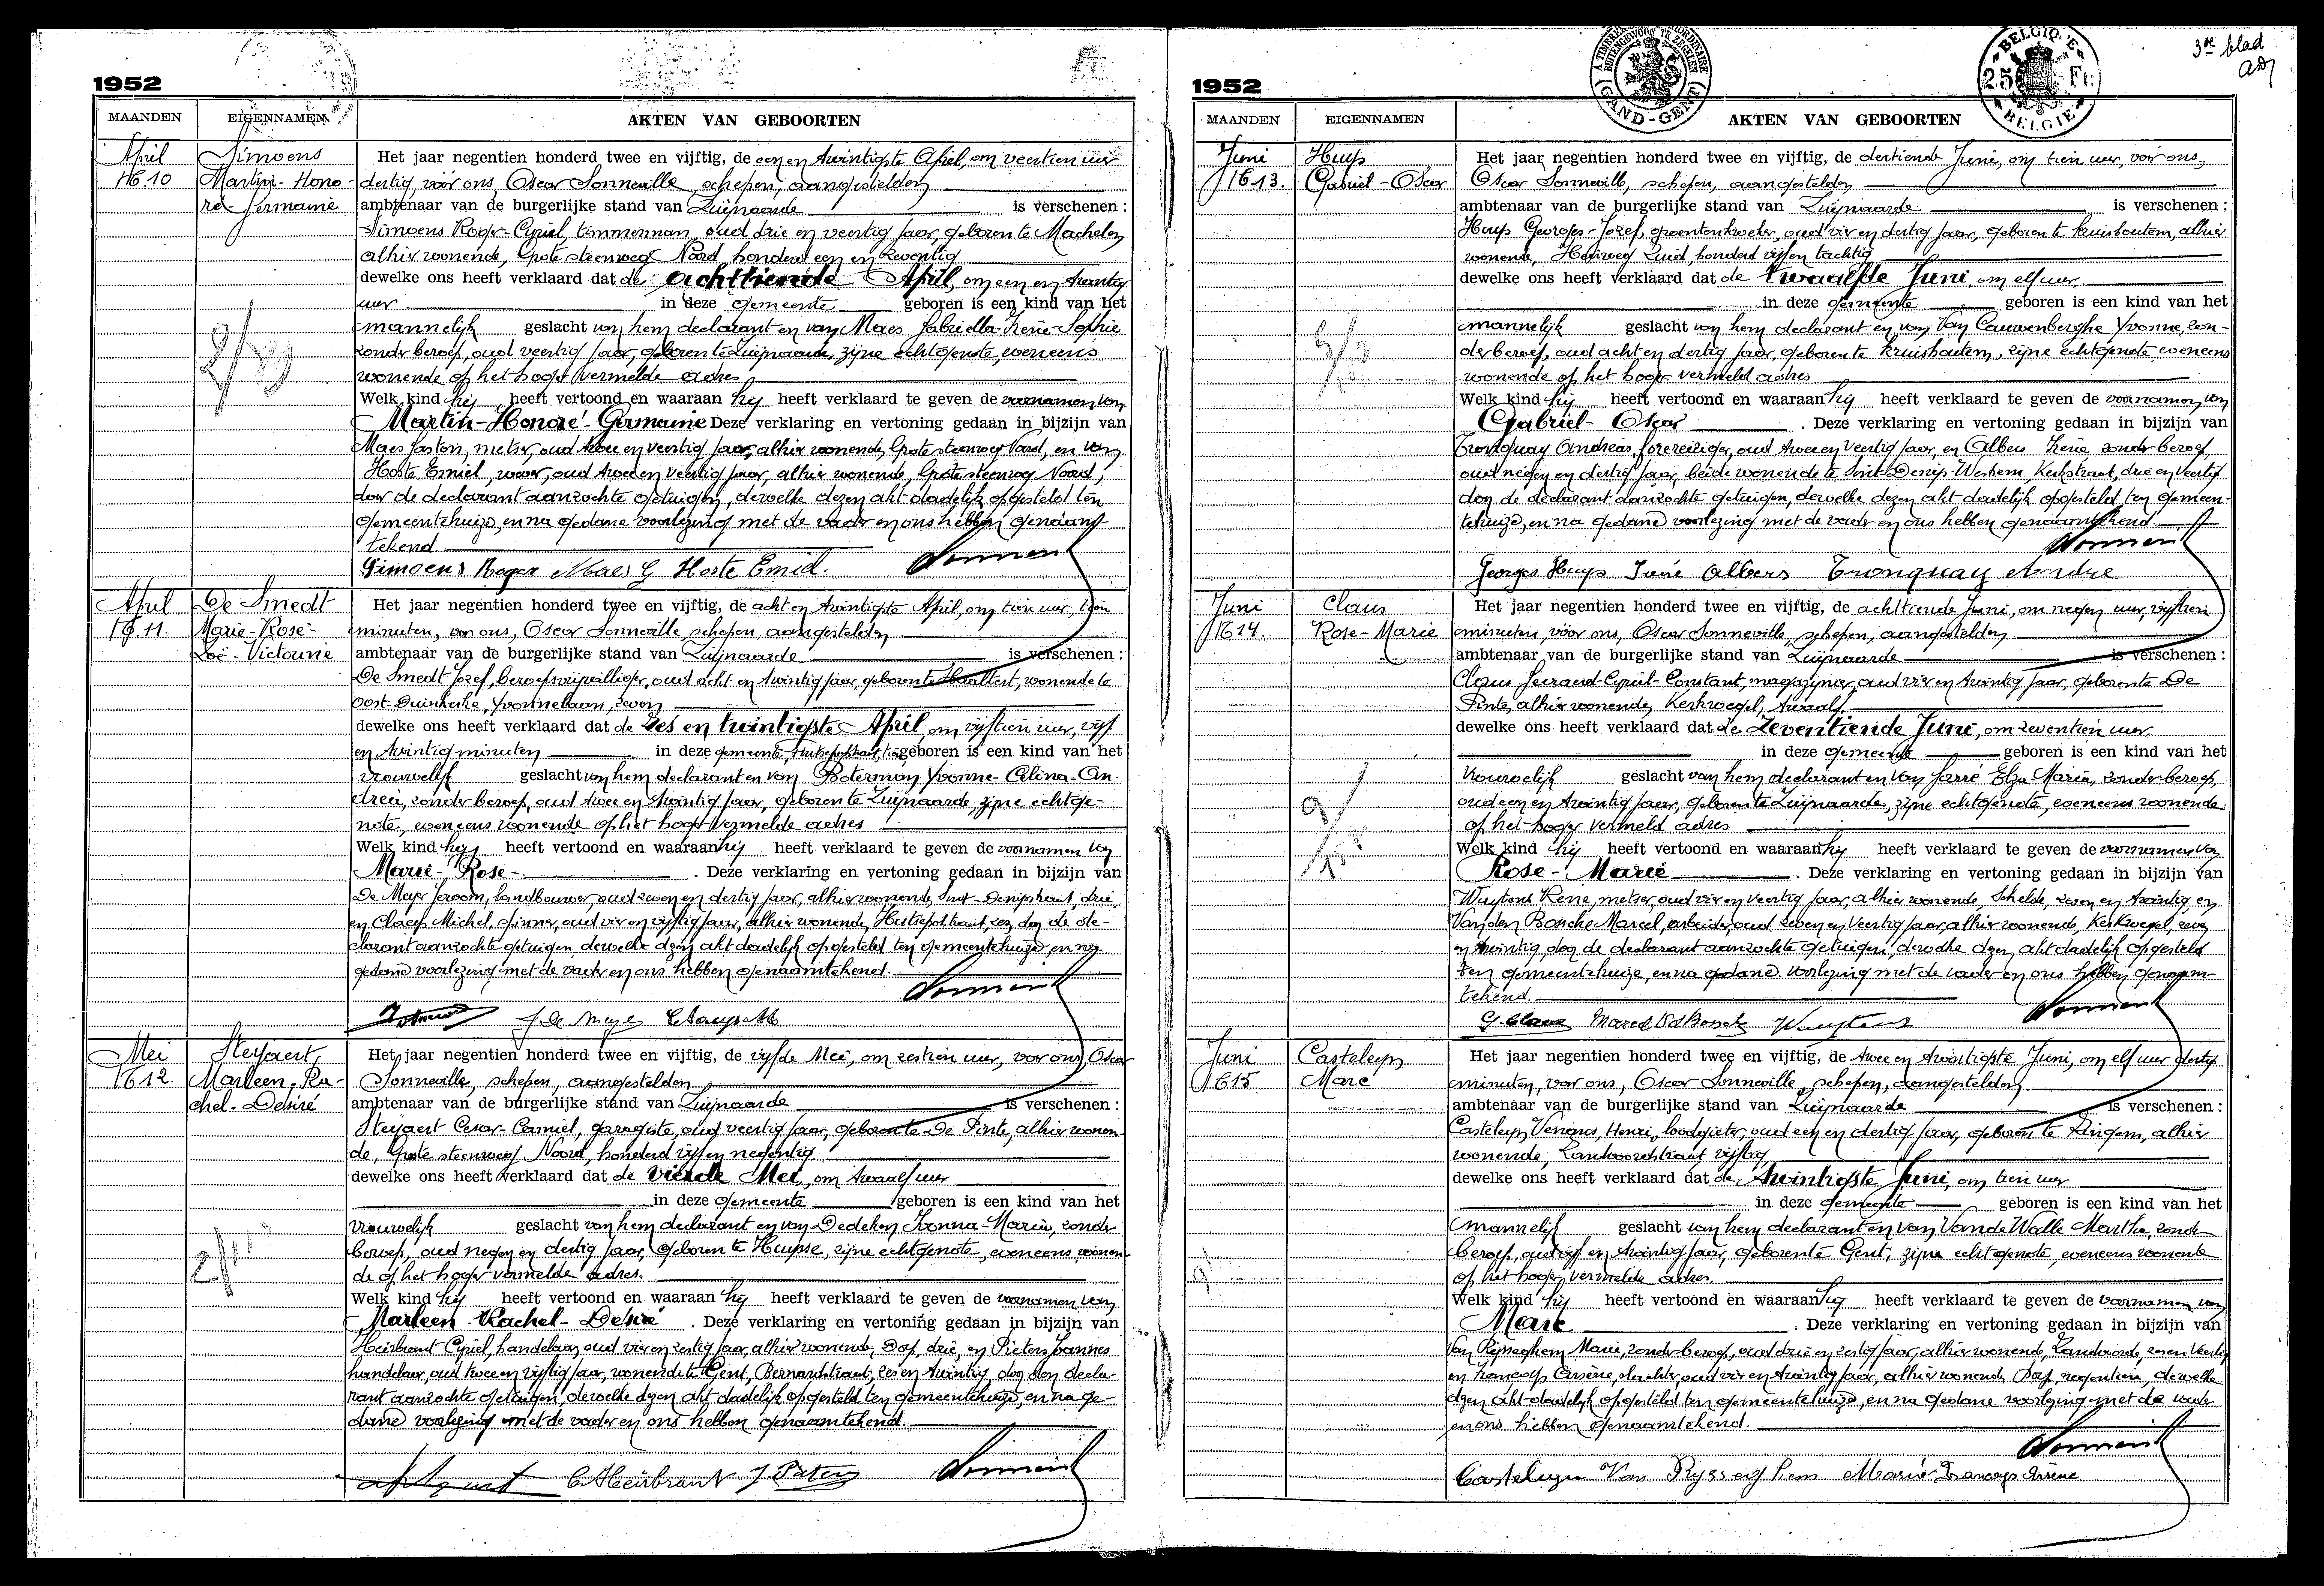 1952
MAANDEN EIGENNAMEN AKTEN VAN GEBOORTEN
April Simoens Het jaar negentien honderd twee en vijftig, de een en twintigste April, om veertien uur
№ 10 Martin-Hono- dertig, vóór ons, Oscar Sonneville, schepen, aangestelden
ré-Germaine ambtenaar van de burgerlijke stand van Zwijnaarde is verschenen :
Simoens Roger-Cyriel, timmerman, oud drie en veertig jaar, geboren te Machelen,
alhier wonende, Grote steenweg Noord, honderd een en zeventig
dewelke ons heeft verklaard dat de achttiende April, om een en twintig
uur in deze gemeente geboren is een kind van het
mannelijk geslacht van hem declarant en van Maes Gabriella-Irène-Sophie
zonder beroep, oud veertig jaar, geboren te Zwijnaarde, zijne echtgenote, eveneens
wonende op het hoger vermelde adres
Welk kind hij heeft vertoond en waaraan hij heeft verklaard te geven de voornamen van
Martin-Honoré-Germaine Deze verklaring en vertoning gedaan in bijzijn van
Maes Gaston, metser, oud twee en veertig jaar, alhier wonende, Grote steenweg Noord, en van
Hoste Emiel, wever, oud twee en veertig jaar, alhier wonende, Grote steenweg Noord,
door de declarant aanzochte getuigen, dewelke dezen akt dadelijk opgesteld ten
gemeentehuize, en na gedane voorlezing met de vader en ons hebben genaamt-
tekend
Simoens Roger Maes G Hoste Emiel.
April De Smedt Het jaar negentien honderd twee en vijftig, de acht en twintigste April, om tien uur, tien
№ 11. Marie-Rose- minuten, voor ons, Oscar Sonneville, schepen, aangestelden
Zoë-Victorine ambtenaar van de burgerlijke stand van Zwijnaarde is verschenen :
De Smedt Jozef, beroepsvrijwilliger, oud acht en twintig jaar, geboren te Haaltert, wonende te
Oost-Duinkerke, Yvonnelaan, zeven
dewelke ons heeft verklaard dat de zes en twintigste April, om vijftien uur, vijf
en twintig minuten in deze gemeente, Hutsepotstraat, geboren is een kind van het
vrouwelijk geslacht van hem declarant en van Boterman Yvonne-Celina-An-
drea, zonder beroep, oud twee en twintig jaar, geboren te Zwijnaarde, zijne echtge-
note, eveneens wonende op het hoger vermelde adres
Welk kind hij heeft vertoond en waaraan hij heeft verklaard te geven de voornamen van
Marie-Rose- . Deze verklaring en vertoning gedaan in bijzijn van
De Meyer Jeroom, landbouwer, oud zeven en dertig jaar, alhier wonende, Sint-Denijsstraat, drie,
en Claeys Michel, spinner, oud vier en vijftig jaar, alhier wonende, Hutsepotstraat, zes, door de de-
clarant aanzochte getuigen, dewelke dezen akt dadelijk opgesteld ten gemeentehuize, en na
gedane voorlezing met de vader en ons hebben genaamtekend.
J De Meye Claeys M
Mei Steyaert, Het jaar negentien honderd twee en vijftig, de vijfde Mei, om zestien uur, voor ons, Oscar
№ 12. Marleen-Ra- Sonneville, schepen, aangestelden
chel-Desiré ambtenaar van de burgerlijke stand van Zwijnaarde is verschenen :
Steyaert Cesar-Camiel, garagiste, oud veertig jaar, geboren te De Pinte, alhier wonen-
de, Grote steenweg Noord, honderd vijf en negentig
dewelke ons heeft verklaard dat de vierde Mei, om twaalf uur
in deze gemeente geboren is een kind van het
vrouwelijk geslacht van hem declarant en van Dedeken Ivonna-Maria, zonder
beroep, oud negen en dertig jaar, geboren te Huysse, zijne echtgenote, eveneens wonen-
de op het hoger vermelde adres.
Welk kind hij heeft vertoond en waaraan hij heeft verklaard te geven de voornamen van
Marleen-Rachel-Desiré . Deze verklaring en vertoning gedaan in bijzijn van
Heirbrant Cyriel, handelaar, oud vier en zestig jaar, alhier wonende, Dorp, drie, en Pieters Joannes
handelaar, oud twee en vijftig jaar, wonende te Gent, zes en twintig, door den decla-
rant aanzochte getuigen, dewelke dezen akt dadelijk opgesteld ten gemeentehuize, en na ge-
dane voorlezing met de vader en ons hebben genaamtekend.
C. Heirbrant J. Pieters
3de blad
A TIMBRER EXTRAORDINAIRE
BUITENGEWOON TE ZEGELEN
(GAND-GENT)
BELGIQUE
25 Fr.
BELGIE
1952
MAANDEN EIGENNAMEN AKTEN VAN GEBOORTEN
Juni Huys Het jaar negentien honderd twee en vijftig, de dertiende Juni, om tien uur, voor ons,
№ 13. Gabriel-Oscar Oscar Sonneville, schepen, aangestelden
ambtenaar van de burgerlijke stand van Zwijnaarde is verschenen :
Huys Georges-Jozef, groentenkweker, oud vier en dertig jaar, geboren te Kruishoutem, alhier
wonende, Heerweg Zuid, honderd vijf en tachtig
dewelke ons heeft verklaard dat de twaalfde Juni, om elf uur
in deze gemeente geboren is een kind van het
mannelijk geslacht van hem declarant en van Van Cauwenberghe Yvonne, zon-
der beroep, oud acht en dertig jaar, geboren te Kruishoutem, zijne echtgenote eveneens
wonende op het hoger vermeld adres
Welk kind hij heeft vertoond en waaraan hij heeft verklaard te geven de voornamen van
Gabriël-Oscar . Deze verklaring en vertoning gedaan in bijzijn van
Tronquay Andreas, oud twee en veertig jaar, en Albers Irène zonder beroep
oud negen en dertig jaar, beide wonende te Sint-Denijs-Westrem, Kerkstraat, drie en veertig
door de declarant aanzochte getuigen, dewelke dezen akt dadelijk opgesteld ten gemeen-
tehuize, en na gedane voorlezing met de vader en ons hebben genaamtekend.
Georges Huys Irène Albers Tronquay Andre
Juni Claus Het jaar negentien honderd twee en vijftig, de achttiende Juni, om negen uur, vijftien
№ 14. Rose-Marie minuten, vóór ons, Oscar Sonneville, schepen, aangestelden
ambtenaar van de burgerlijke stand van Zwijnaarde is verschenen :
Claus Gerard-Cyriel-Constant, magazijnier, oud vier en twintig jaar, geboren te De
Pinte, alhier wonende, Kerkwegel, twaalf.
dewelke ons heeft verklaard dat de zeventiende Juni, om zeventien uur
in deze gemeente geboren is een kind van het
vrouwelijk geslacht van hem declarant en van Jarré Elza-Maria, zonder beroep,
oud een en twintig jaar, geboren te Zwijnaarde, zijne echtgenote, eveneens wonende
op het hoger vermeld adres
Welk kind hij heeft vertoond en waaraan hij heeft verklaard te geven de voornamen van
Rose-Marie . Deze verklaring en vertoning gedaan in bijzijn van
Wuytens Rene, metser, oud vier en veertig jaar, alhier wonende, Schelde, zeven en twintig en
Van den Bossche Marcel, arbeider, oud zeven en veertig jaar, alhier wonende, Kerkwegel,
en twintig, door de declarant aanzochte getuigen, dewelke dezen akt dadelijk opgesteld
ten gemeentehuize, en na gedane voorlezing met de vader en ons hebben genaam-
tekend.
G. Claus Marcel Vd Bossche Wuytens
Juni Casteleyn Het jaar negentien honderd twee en vijftig, de twee en twintigste Juni, om elf uur dertig
№ 15 Marc minuten, voor ons, Oscar Sonneville, schepen, aangestelden
ambtenaar van de burgerlijke stand van Zwijnaarde is verschenen :
Casteleyn, Henri, loodgieter, oud een en dertig jaar, geboren te Zingem, alhier
wonende, vijftig
dewelke ons heeft verklaard dat de twintigste Juni, om tien uur
in deze gemeente geboren is een kind van het
mannelijk geslacht van hem declarant en van Van de Walle Martha, zonder
beroep, oud vijf en twintig jaar, geboren te Gent, zijne echtgenote, eveneens wonende
op het hoger vermelde adres.
Welk kind hij heeft vertoond en waaraan hij heeft verklaard te geven de voornamen van
Marc . Deze verklaring en vertoning gedaan in bijzijn van
Van Rysseghem Marie, zonder beroep, oud drie en zestig jaar, alhier wonende,
en Francoys Arsène, slachter, oud vier en twintig jaar, alhier wonende, Dorp, negentien, dewelke
dezen akt dadelijk opgesteld ten gemeentehuize, en na gedane voorlezing met de vader
en ons hebben genaamtekend.
Casteleyn Van Rysseghem Marie Francoys Arsène